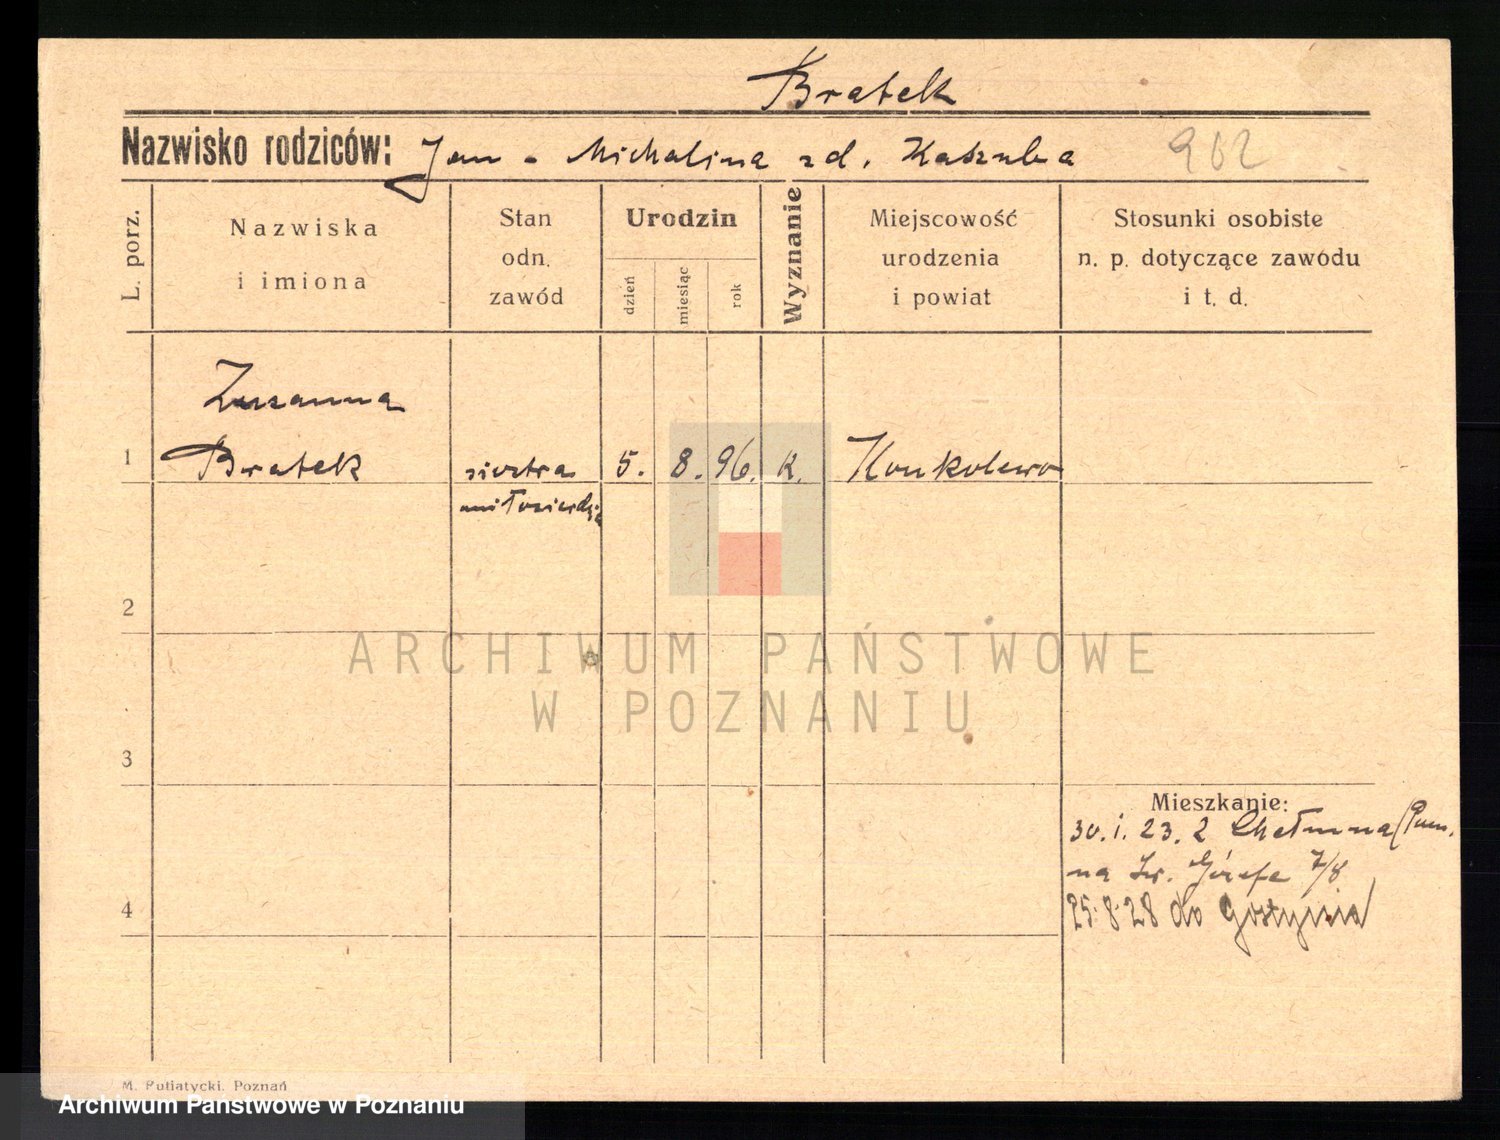 Bratek
Nazwisko rodziców: Jan - Michalina zd. Kaszuba 962
L. porz.
Nazwiska
i imiona
Stan
odn.
zawód
Urodzin
dzień
miesiąc
rok
Wyznanie
Miejscowość
urodzenia
i powiat
Stosunki osobiste
n. p. dotyczące zawodu
i t. d.
Zuzanna
1 Bratek siostra 5. 8. 96. k. Konkolewo
miłosierdzia
2
ARCHIWUM PAŃSTWOWE
W POZNANIU
3
Mieszkanie:
30. i. 23. z Chełmna (Pom.
na Św. Józefa 7/8
4
25.8.28 do Gostynia
M. Putiatycki, Poznań
Archiwum Państwowe w Poznaniu